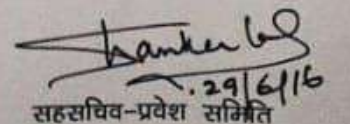 29/6/16
सहसचिव-प्रवेश समिति